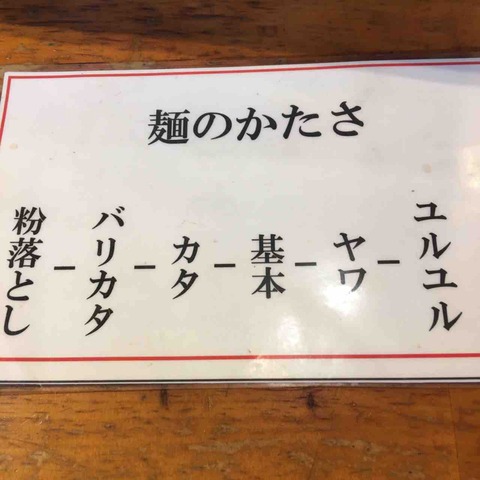 麺のかたさ
粉落とし－バリカタ－カタ－基本－ヤワ－ユルユル